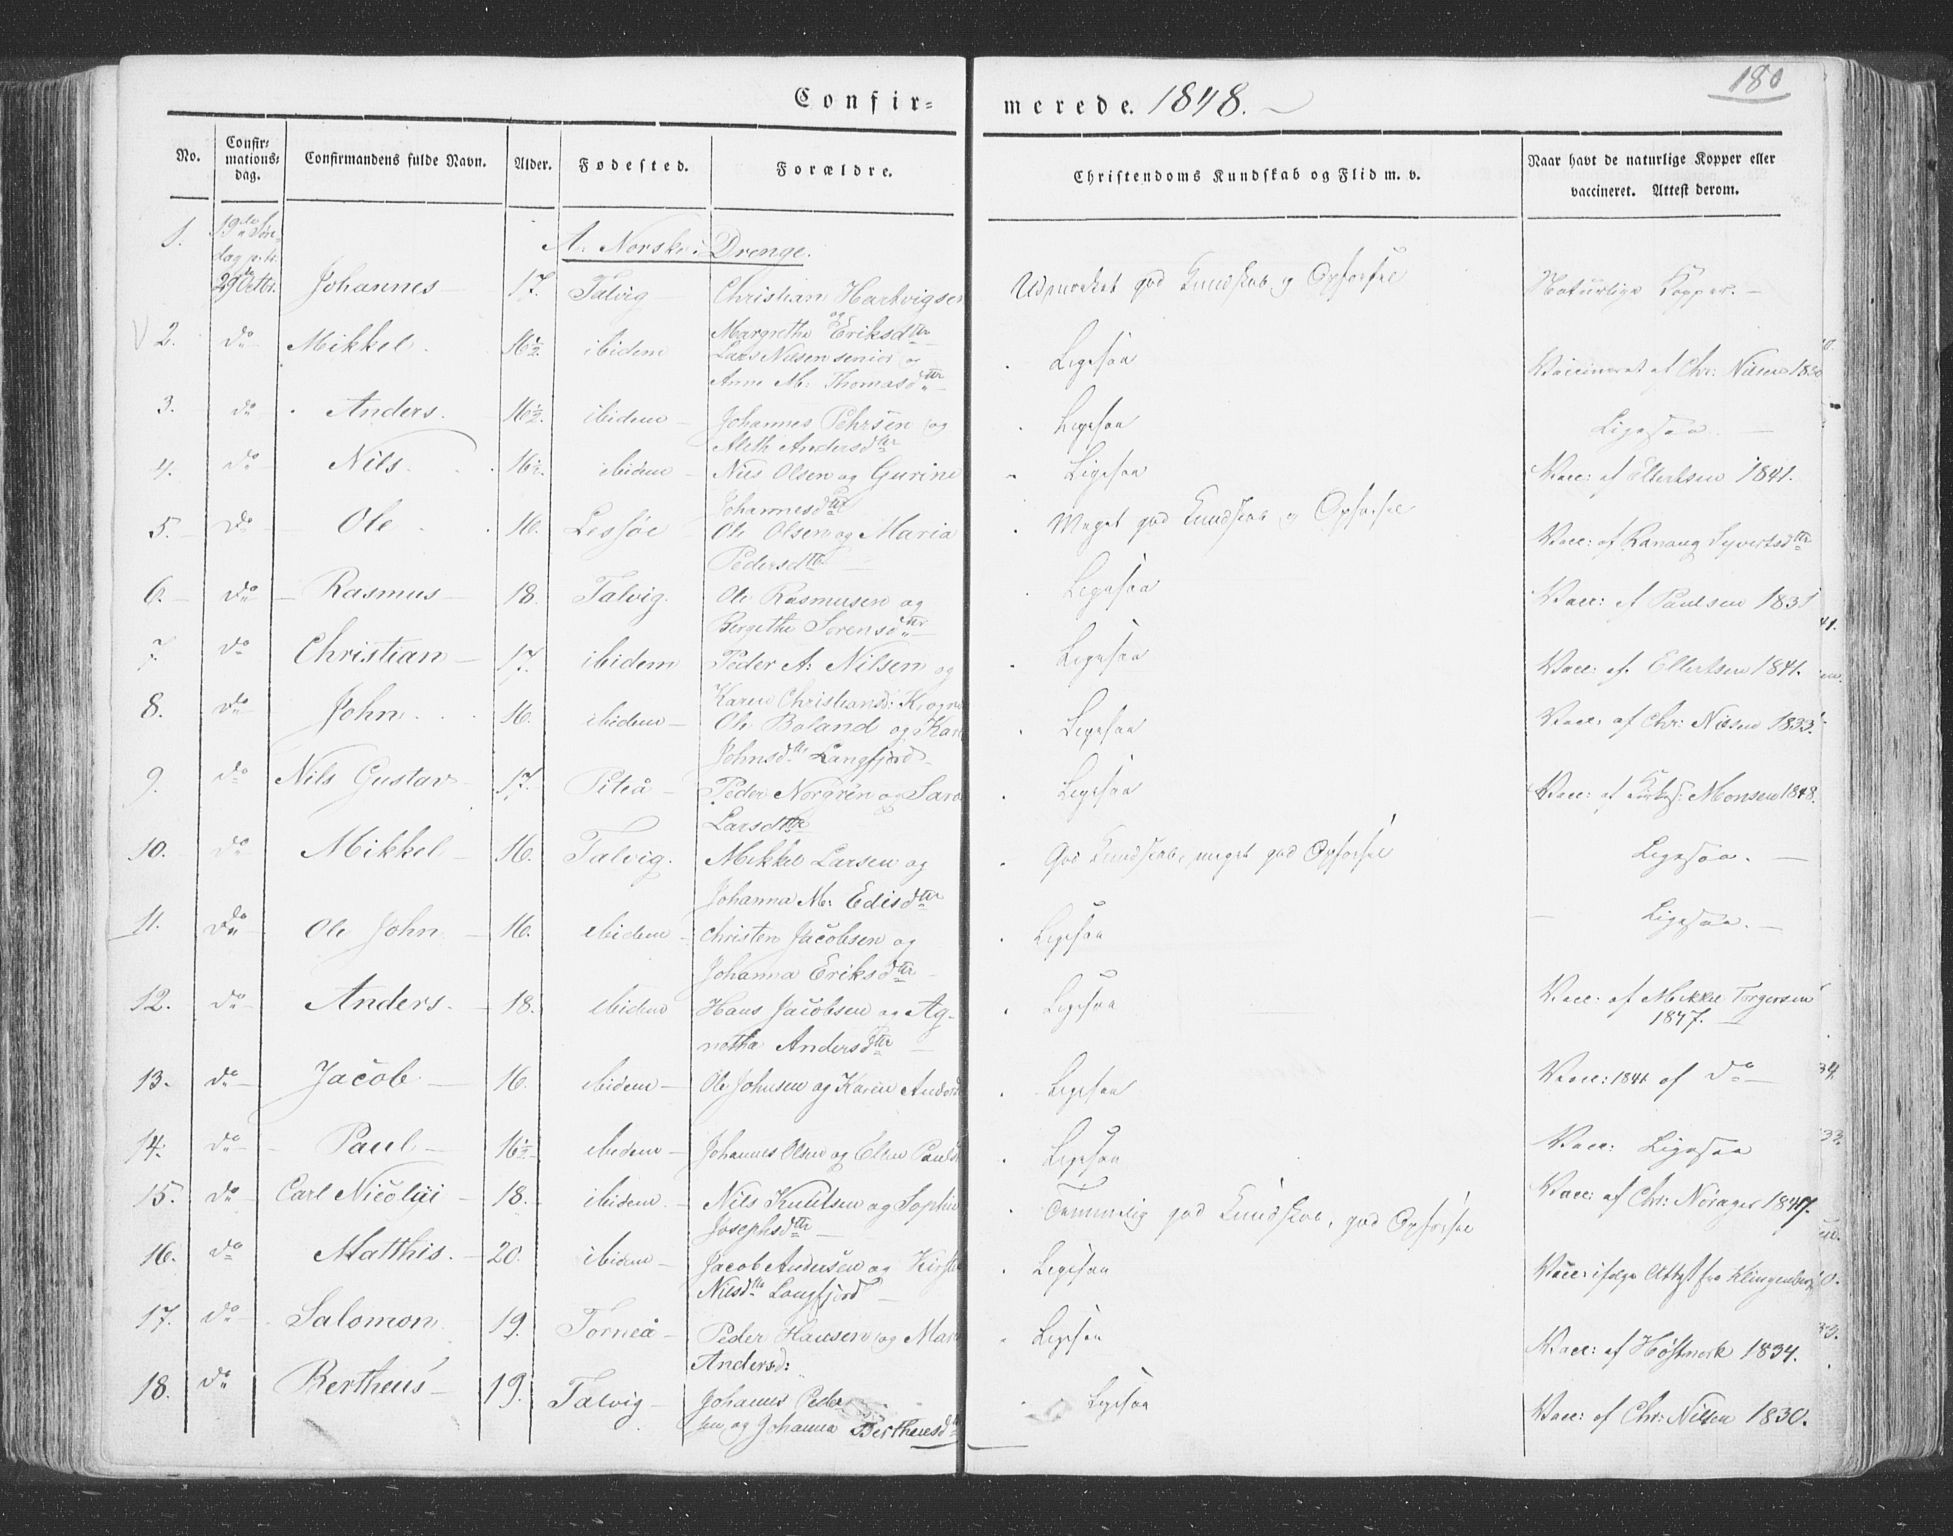 180
Confir-
merede. 1848.
No.
Confir-
mations-
dag.
Confirmandens fulde Navn.
Alder.
Fødested.
Forældre.
Christendoms Kundskab og Flid m. v.
Naar havt de naturlige Kopper eller
vaccineret. Attest derom.
A. Norske: Drenge.
1. 19de Søn-
dag p. tr.
29de Octbr. Johannes 17. Talvig Christian Hartvigsen Udmærket god Kundskab og Opførsel Naturlige Kopper.
og
Margrethe Eriksdttr
2. do Mikkel 16½ ibidem Lars Nilsen senior og Ligesaa Vaccineret af Chr: Nilsen 1830
Anne M: Thomasdttr
3. do Anders. 16½. ibidem Johannes Pehrsen og Ligesaa Ligesaa
Aleth Andersdttr
4. do Nils. 16½. ibidem Nils Olsen og Gurine Ligesaa Vacc: af Ellertsen 1841.
Johannesdttr
5. do Ole 16. Lessøe Ole Olsen og Maria Meget god Kundskab og Opførsel Vacc: af Ranaug Syvertsdttr
Pedersdttr
6. do Rasmus 18. Talvig. Ole Rasmusen og Ligesaa Vacc: af Paulsen 1831
Bergethe Sørensdttr
7. do Christian 17. ibidem Peder A: Nilsen og Ligesaa Vacc: af Ellertsen 1841.
Karen Christiansd:
8. do John 16. ibidem Ole Boland og Kar Ligesaa Vacc: af Chr: Nilsen 1833.
Johnsdtr Langfjord
9. do Nils Gustav 17. Piteå Peder Norgrén og Sara Ligesaa Vacc: af Kirkes: Monsen 1848.
Larsdttr
10. do Mikkel 16. Talvig. Mikkel Larsen og God Kundskab, meget god Opførsel Ligesaa.
Johanna M: Edisdttr
11. do Ole John 16. ibidem Christen Jacobsen og Ligesaa Ligesaa.
Johanna Eriksdttr
12. do Anders. 18. ibidem Hans Jacobsen og Ag- Ligesaa Vacc: af Mikkel Torgersen
1847.
netha Andersdttr
13. do Jacob 16. ibidem Ole Johnsen og Karen Andersd Ligesaa Vacc: 1841 af do
14. do Paul 16½ ibidem Johannes Olsen og Elen Paulsd Ligesaa Vacc: Ligesaa
15. do Carl Nicolai 18. ibidem Nils Knutsen og Sophie Temmelig god Kundskab, god Opførsel Vacc: af Chr: Norager 1847.
Josephsdttr
16. do Matthis. 20. ibidem Jacob Andersen og Kirste Ligesaa Vacc: ifølge Attest fra Klingenberg
Nilsdtr Langfjord
17. do Salomon 19. Torneå Peder Hansen og Mar Ligesaa Vacc: af Høstmerk 1834.
Andersd:
18. do Bertheus 19. Talvig Johannes Peder Ligesaa Vacc: af Chr: Nilsen 1830.
sen og Johanna Bertheusdtr